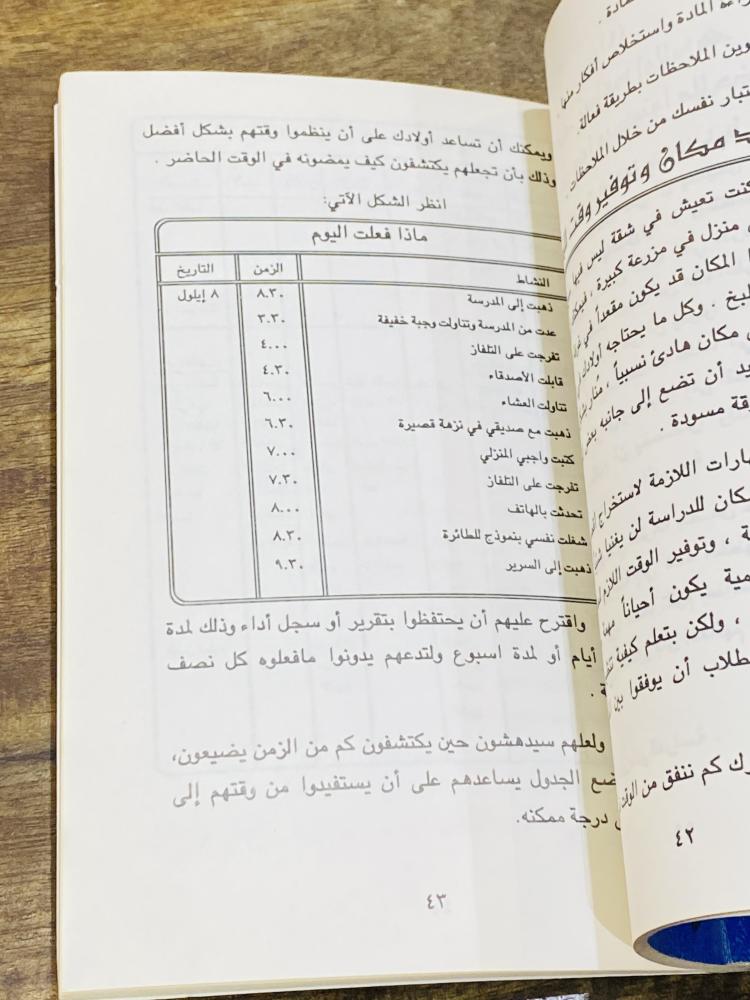 صادة .
راءة المادة واستخلاص أفكار منها
وين الملاحظات بطريقة فعالة.
تبار نفسك من خلال الملاحظات .
د مكان وتوفير وقت
كنت تعيش في شقة ليس فيها
منزل في مزرعة كبيرة ، فيمكن
المكان قد يكون مقعداً في
طبخ . وكل ما يحتاجه أولادك
مكان هادئ نسبياً ، مُنار
يد أن تضع إلى جانبه بعض
قة مسودة .
هارات اللازمة لاستخراج
كان للدراسة لن يغنيا
ة ، وتوفير الوقت اللازم
مية يكون أحياناً
، ولكن بتعلم كيفية
طلاب أن يوفقوا بين
رك كم ننفق من الوقت
٤٢
ويمكنك أن تساعد أولادك على أن ينظموا وقتهم بشكل أفضل
وذلك بأن تجعلهم يكتشفون كيف يمضونه في الوقت الحاضر .
انظر الشكل الآتي:
ماذا فعلت اليوم
النشاط الزمن التاريخ
ذهبت إلى المدرسة ٨.٣٠ ٨ إيلول
عدت من المدرسة وتناولت وجبة خفيفة ٣.٣٠
تفرجت على التلفاز ٤.٠٠
قابلت الأصدقاء ٤.٣٠
تناولت العشاء ٦.٠٠
ذهبت مع صديقي في نزهة قصيرة ٦.٣٠
كتبت واجبي المنزلي ٧.٠٠
تفرجت على التلفاز ٧.٣٠
تحدثت بالهاتف ٨.٠٠
شغلت نفسي بنموذج للطائرة ٨.٣٠
ذهبت إلى السرير ٩.٣٠
واقترح عليهم أن يحتفظوا بتقرير أو سجل أداء وذلك لمدة
أيام أو لمدة اسبوع ولتدعهم يدونوا مافعلوه كل نصف
ة .
ولعلهم سيدهشون حين يكتشفون كم من الزمن يضيعون،
ضع الجدول يساعدهم على أن يستفيدوا من وقتهم إلى
درجة ممكنه.
٤٣